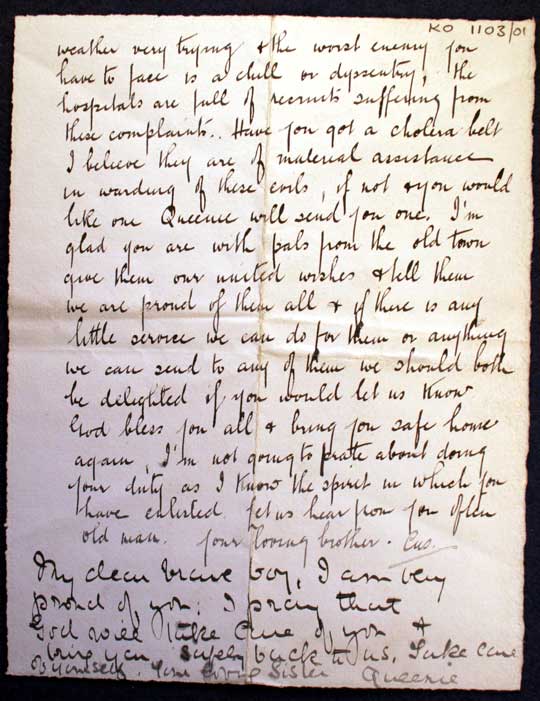 KO 1103/01
weather very trying & the worst enemy you
have to face is a chill or dyssentry, the
hospitals are full of recruits suffering from
these complaints.. Have you got a cholera belt
I believe they are of material assistance
in warding of these evils, if not & you would
like one Queenie will send you one. I'm
glad you are with pals from the old town
give them our united wishes & tell them
we are proud of them all & if there is any
little service we can do for them or anything
we can send to any of them we should both
be delighted if you would let us know
God bless you all & bring you safe home
again, I'm not going to prate about doing
your duty as I know the spirit in which you
have enlisted. Let us hear from you often
old man. Your loving brother. Gus.
My dear brave boy, I am very
proud of you. I pray that
God will take care of you &
bring you safely back to us. Take care
of yourself. Your loving Sister Queenie